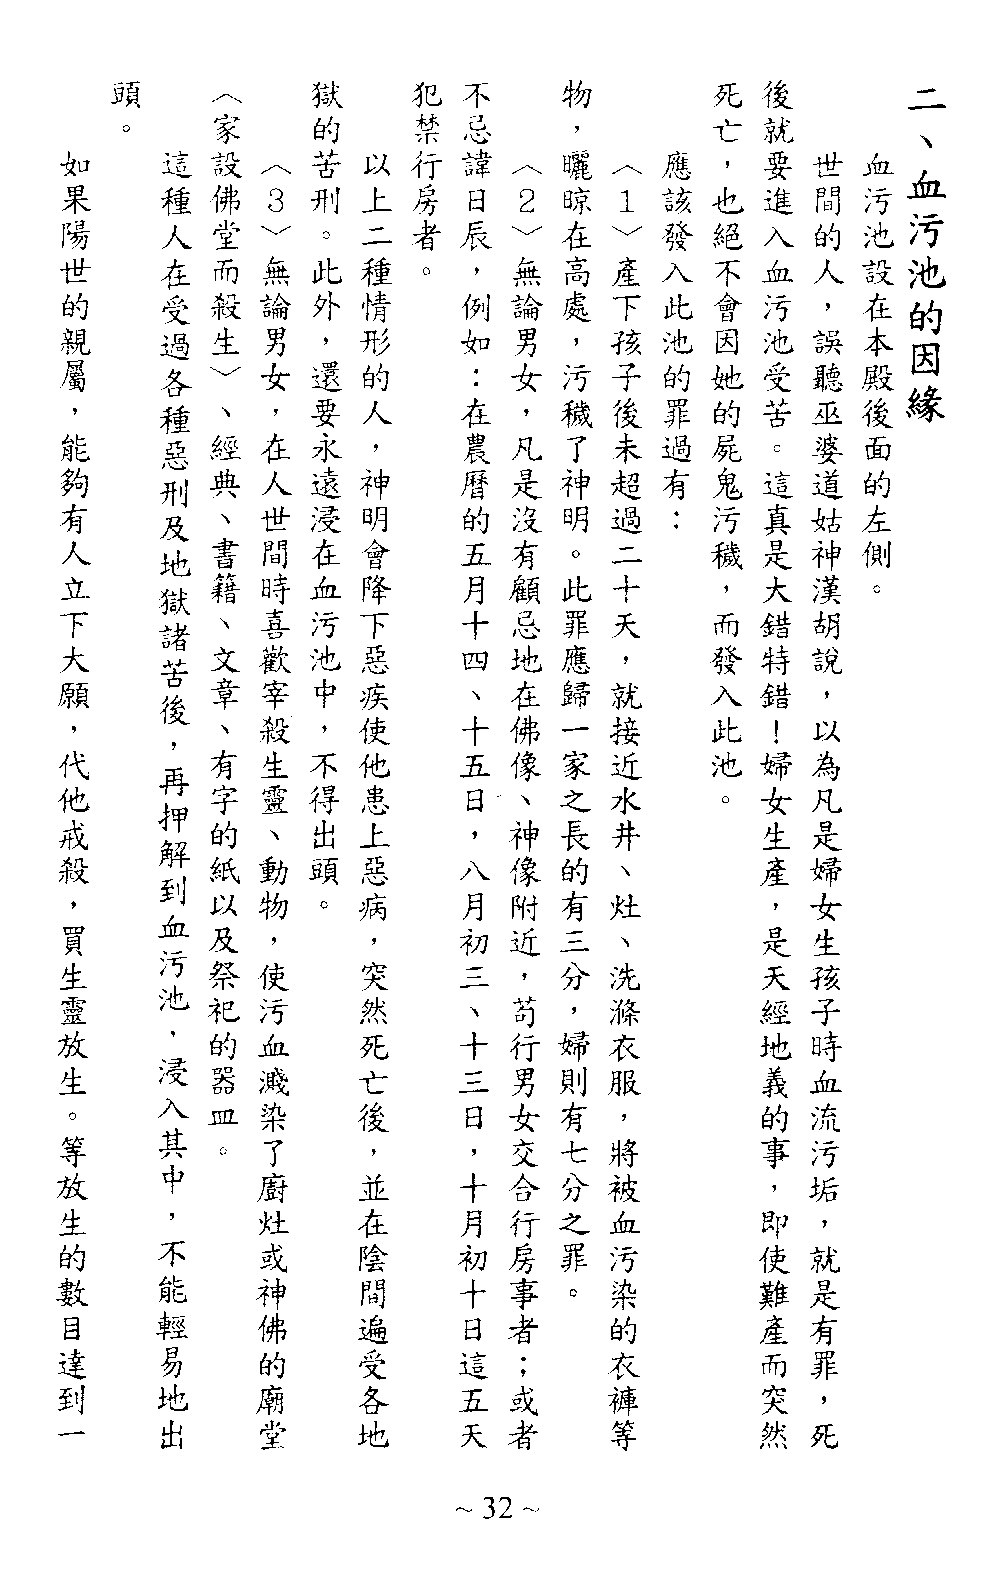 二、血污池的因緣
血污池設在本殿後面的左側。
世間的人，誤聽巫婆道姑神漢胡說，以為凡是婦女生孩子時血流污垢，就是有罪，死
後就要進入血污池受苦。這真是大錯特錯！婦女生產，是天經地義的事，即使難產而突然
死亡，也絕不會因她的屍鬼污穢，而發入此池。
應該發入此池的罪過有：
〈１〉產下孩子後未超過二十天，就接近水井、灶、洗滌衣服，將被血污染的衣褲等
物，曬晾在高處，污穢了神明。此罪應歸一家之長的有三分，婦則有七分之罪。
〈２〉無論男女，凡是沒有顧忌地在佛像、神像附近，苟行男女交合行房事者；或者
不忌諱日辰，例如：在農曆的五月十四、十五日，八月初三、十三日，十月初十日這五天
犯禁行房者。
以上二種情形的人，神明會降下惡疾使他患上惡病，突然死亡後，並在陰間遍受各地
獄的苦刑。此外，還要永遠浸在血污池中，不得出頭。
〈３〉無論男女，在人世間時喜歡宰殺生靈、動物，使污血濺染了廚灶或神佛的廟堂
〈家設佛堂而殺生〉、經典、書籍、文章、有字的紙以及祭祀的器皿。
這種人在受過各種惡刑及地獄諸苦後，再押解到血污池，浸入其中，不能輕易地出
頭。
如果陽世的親屬，能夠有人立下大願，代他戒殺，買生靈放生。等放生的數目達到一
~ 32 ~